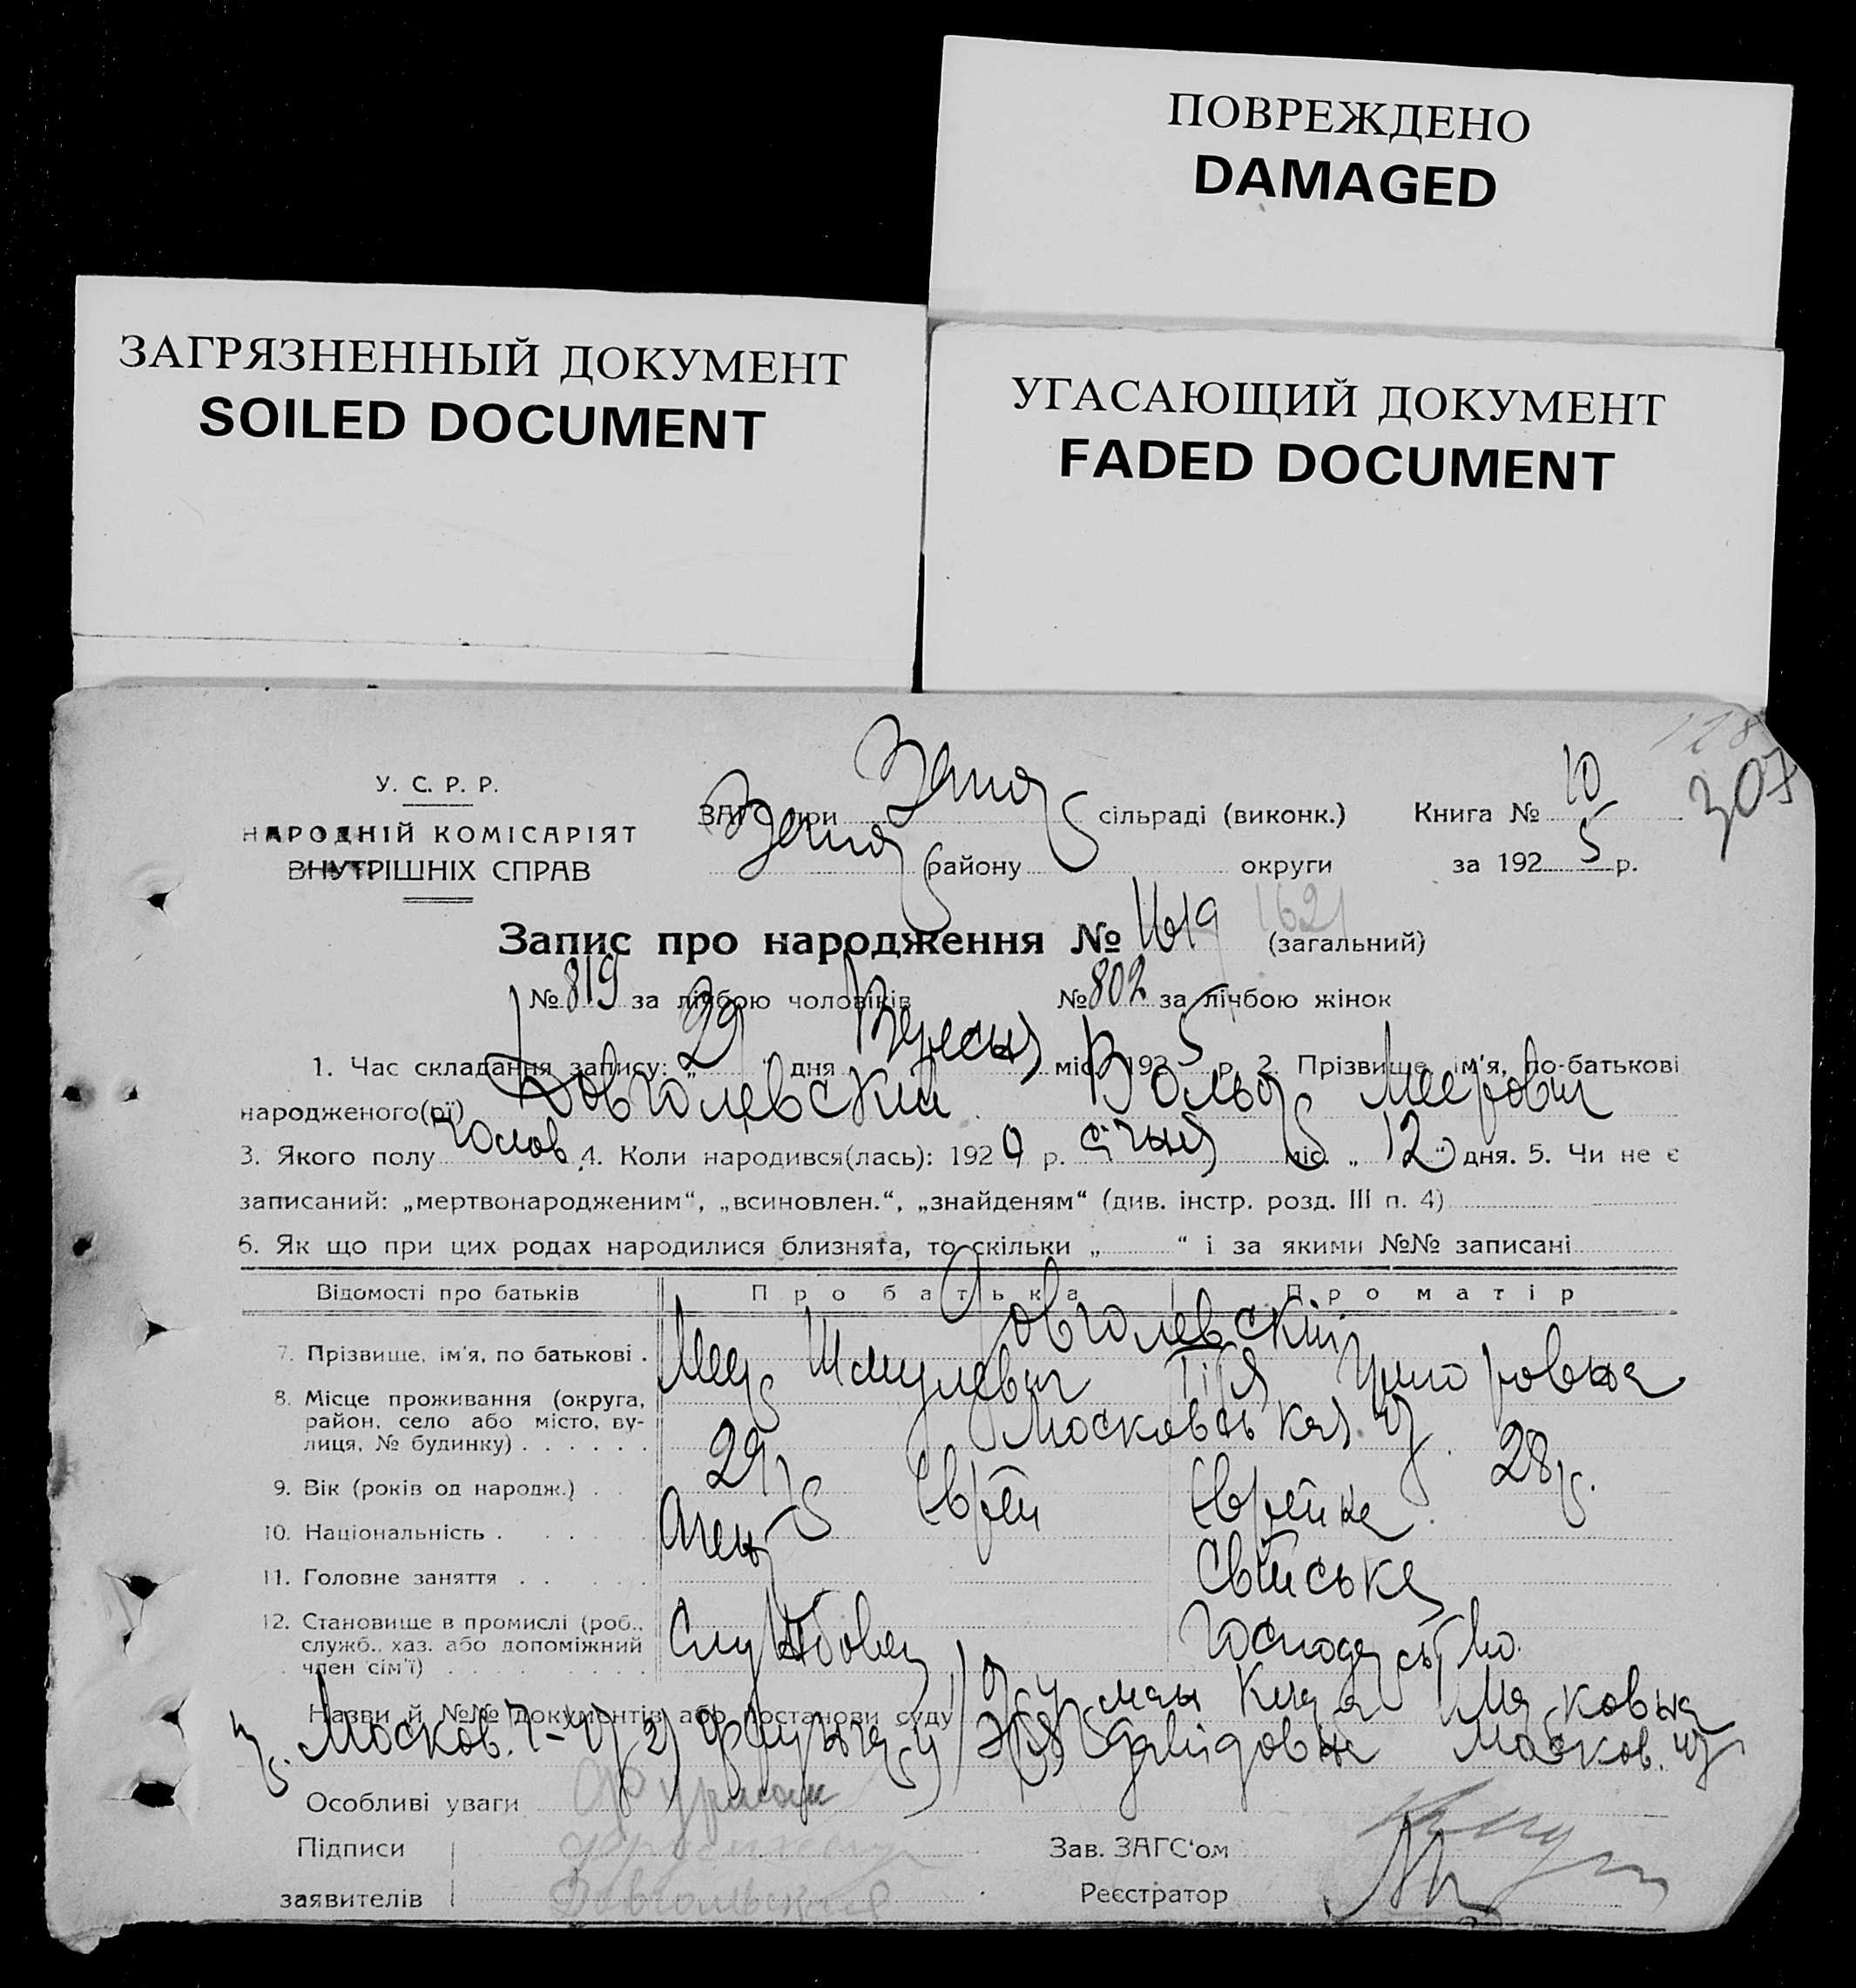 ПОВРЕЖДЕНО
DAMAGED
ЗАГРЯЗНЕННЫЙ ДОКУМЕНТ
SOILED DOCUMENT
УГАСАЮЩИЙ ДОКУМЕНТ
FADED DOCUMENT
128
307
У. С. Р. Р.
НАРОДНІЙ КОМІСАРІЯТ
ВНУТРІШНІХ СПРАВ
ЗАГС при сільраді (виконк.) Книга № 10
району округи за 1925 р.
Запис про народження № 1619 1621 (загальний)
№ 819 за лічбою чоловіків № 802 за лічбою жінок
1. Час складання запису: „29" дня Вересня міс. 1925 р. 2. Прізвище, ім'я, по-батькові
народженого(ої) Довголевский Вольф Меерович
3. Якого полу чолов. 4. Коли народився(лась): 192 р. січня міс. „12" дня. 5. Чи не є
записаний: „мертвонародженим“, „всиновлен.“, „знайденям“ (див. інстр. розд. III п. 4)
6. Як що при цих родах народилися близнята, то скільки „ “ і за якими №№ записані
Відомості про батьків Про батька Про матір
Довголевскии
7. Прізвище, ім'я, по батькові . Меер Шмулевич
8. Місце проживання (округа,
район, село або місто, ву-
лиця, № будинку) . . . . . . Московська
9. Вік (років од народж.) . . 29 р 28 р.
10. Національність . . . . . Єврей Єврейка
11. Головне заняття . . . . . Агент Свійське
12. Становище в промислі (роб.,
служб., хаз. або допоміжний
член сім'ї) . . . . . . . . Службовец господарство.
Назви й №№ документів або постанови суду
Москов. Давідовна Москов.
Особливі уваги Фурман
Підписи Зав. ЗАГС'ом
заявителів Довгольский Реєстратор